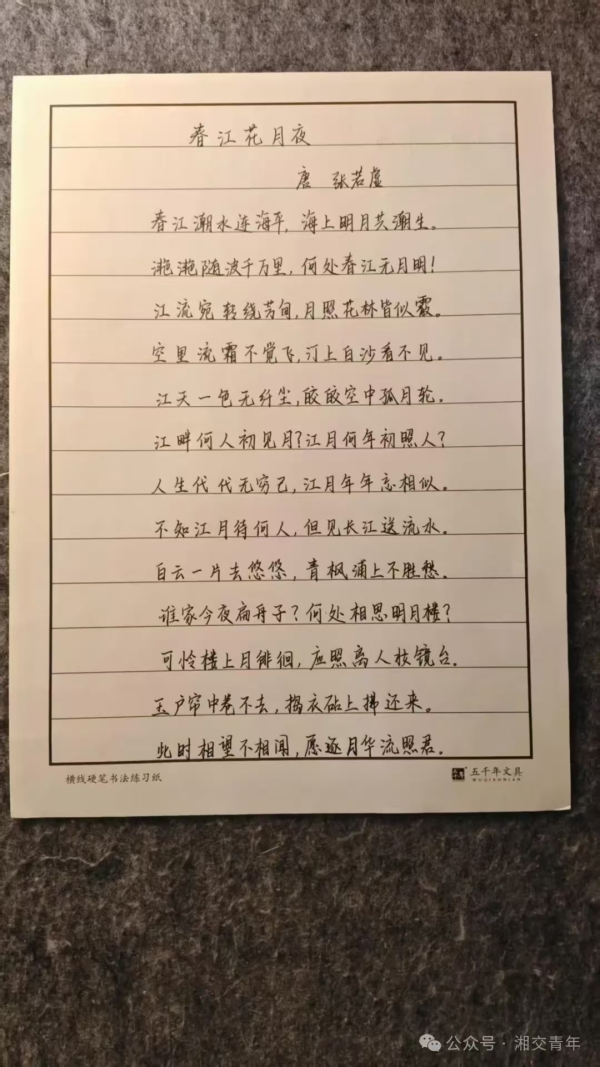 春江花月夜
唐 张若虚
春江潮水连海平,海上明月共潮生。
滟滟随波千万里,何处春江无月明!
江流宛转绕芳甸,月照花林皆似霰。
空里流霜不觉飞,汀上白沙看不见。
江天一色无纤尘,皎皎空中孤月轮。
江畔何人初见月?江月何年初照人?
人生代代无穷已,江月年年忘相似。
不知江月待何人,但见长江送流水。
白云一片去悠悠,青枫浦上不胜愁。
谁家今夜扁舟子?何处相思明月楼?
可怜楼上月徘徊,应照离人妆镜台。
玉户帘中卷不去,捣衣砧上拂还来。
此时相望不相闻,愿逐月华流照君。
横线硬笔书法练习纸
五千年文具
WUQIANNIAN
公众号·湘交青年